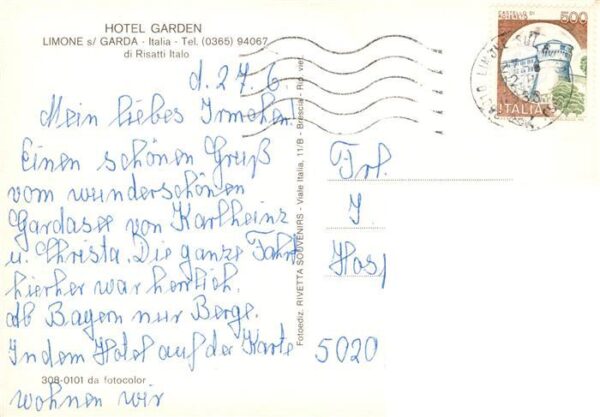 HOTEL GARDEN
LIMONE s/ GARDA - Italia - Tel. (0365) 94067
di Risatti Italo
d. 27.6.
Mein liebes Irmchen!
Einen schönen Gruß
vom wunderschönen
Gardasee von Karlheinz
u. Christa. Die ganze Fahrt
hierher war herrlich,
ab Bayern nur Berge.
In dem Hotel auf der Karte
308-0101 da fotocolor
wohnen wir
Fotoediz. RIVETTA SOUVENIRS - Viale Italia, 11/B - Brescia - Rip. viet.
CASTELLO DI
ROVERETO
500
ITALIA
Frl.
I
Hos
5020